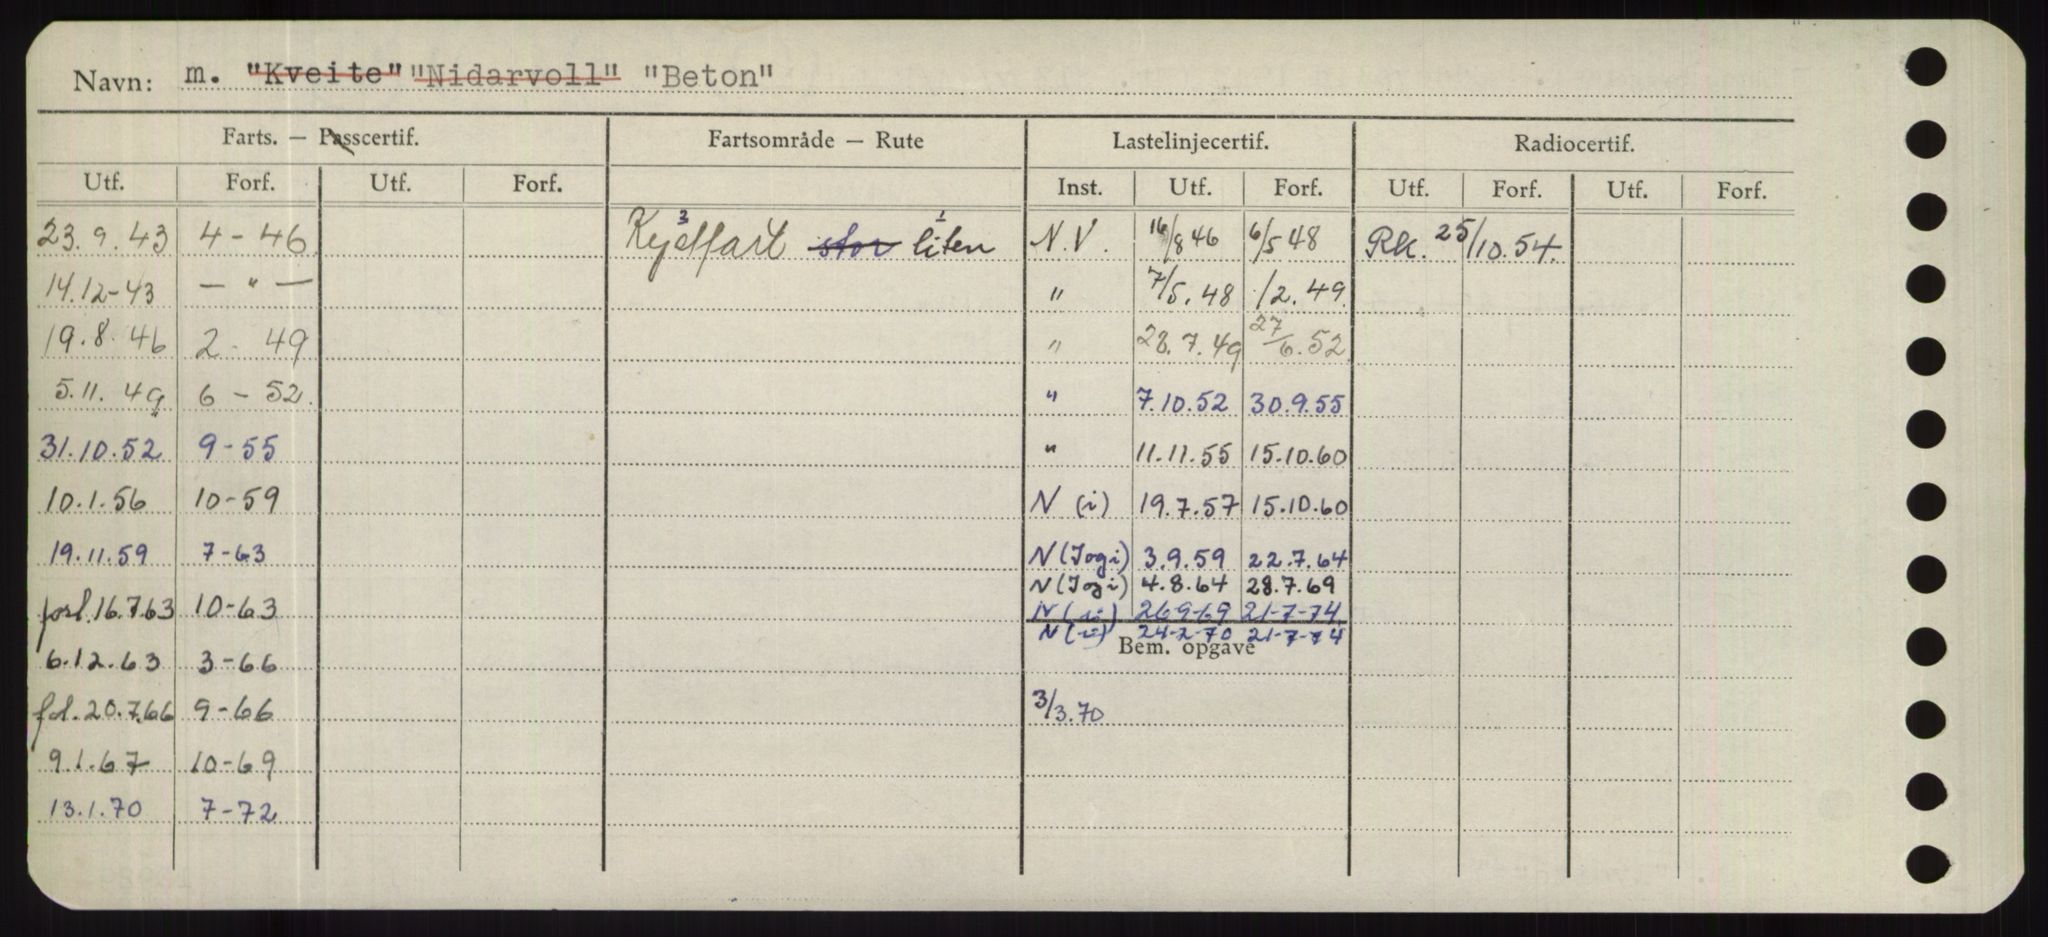 Navn: m. "Kveite" "Nidarvoll" "Beton"
Farts. — Passcertif. Fartsområde — Rute Lastelinjecertif. Radiocertif.
Utf. Forf. Utf. Forf. Inst. Utf. Forf. Utf. Forf. Utf. Forf.
23.9.43 4-46 3 stor liten 1 N.V. 16/8 46 6/5 48 Rk. 25/10.54.
14.12-43 — " — " 7/5.48 /2.49
19.8.46 2-49 " 28.7.49 27/6.52
5.11.49 6-52 " 7.10.52 30.9.55
31.10.52 9-55 " 11.11.55 15.10.60
10.1.56 10-59 N (i) 19.7.57 15.10.60
19.11.59 7-63 N (I og i) 3.9.59 22.7.64
N (I og i) 4.8.64 28.7.69
forl. 16.7.63 10-63 N 21-7-74
N 24-2-70 21-7-74
6.12.63 3-66 Bem. opgave
fol. 20.7.66 9-66 3/3.70
9.1.67 10-69
13.1.70 7-72